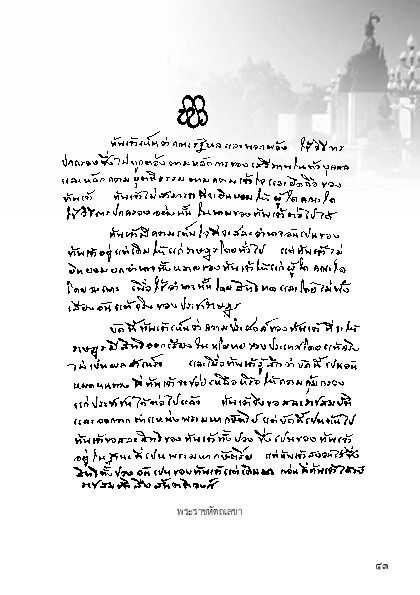 ข้าพเจ้าเห็นว่าคณะรัฐบาลและพวกพ้อง ใช้วิธีการ
ปกครองซึ่งไม่ถูกต้องตามหลักการของเสรีภาพในตัวบุคคล
และหลักความยุติธรรมตามความเข้าใจและยึดถือของ
ข้าพเจ้า ข้าพเจ้าไม่สามารถที่จะยินยอมให้ผู้ใดคณะใด
ใช้วิธีการปกครองอย่างนั้นในนามของข้าพเจ้าต่อไปได้
ข้าพเจ้ามีความเต็มใจที่จะสละอำนาจอันเป็นของ
ข้าพเจ้าอยู่แต่เดิมให้แก่ราษฎรโดยทั่วไป แต่ข้าพเจ้าไม่
ยินยอมยกอำนาจทั้งหลายของข้าพเจ้าให้แก่ผู้ใด คณะใด
โดยเฉพาะ เพื่อใช้อำนาจนั้นโดยสิทธิขาดและโดยไม่ฟัง
เสียงอันแท้จริงของประชาราษฎร
บัดนี้ข้าพเจ้าเห็นว่าความประสงค์ของข้าพเจ้าที่จะให้
ราษฎรมีสิทธิออกเสียงในนโยบายของประเทศโดยแท้จริง
ไม่เป็นผลสำเร็จ และเมื่อข้าพเจ้ารู้สึกว่าบัดนี้เป็นอัน
หมดหนทางที่ข้าพเจ้าจะช่วยเหลือหรือให้ความคุ้มครอง
แก่ประชาชนได้ต่อไปแล้ว ข้าพเจ้าจึงขอสละราชสมบัติ
และออกจากตำแหน่งพระมหากษัตริย์ แต่บัดนี้เป็นต้นไป
ข้าพเจ้าขอสละสิทธิของข้าพเจ้าทั้งปวง ซึ่งเป็นของข้าพเจ้า
อยู่ในฐานะที่เป็นพระมหากษัตริย์ แต่ข้าพเจ้าสงวนไว้ซึ่ง
สิทธิทั้งปวงอันเป็นของข้าพเจ้าแต่เดิมมา ก่อนที่ข้าพเจ้าได้รับ
ราชสมบัติสืบสันตติวงศ์
พระราชหัตถเลขา
๔๓